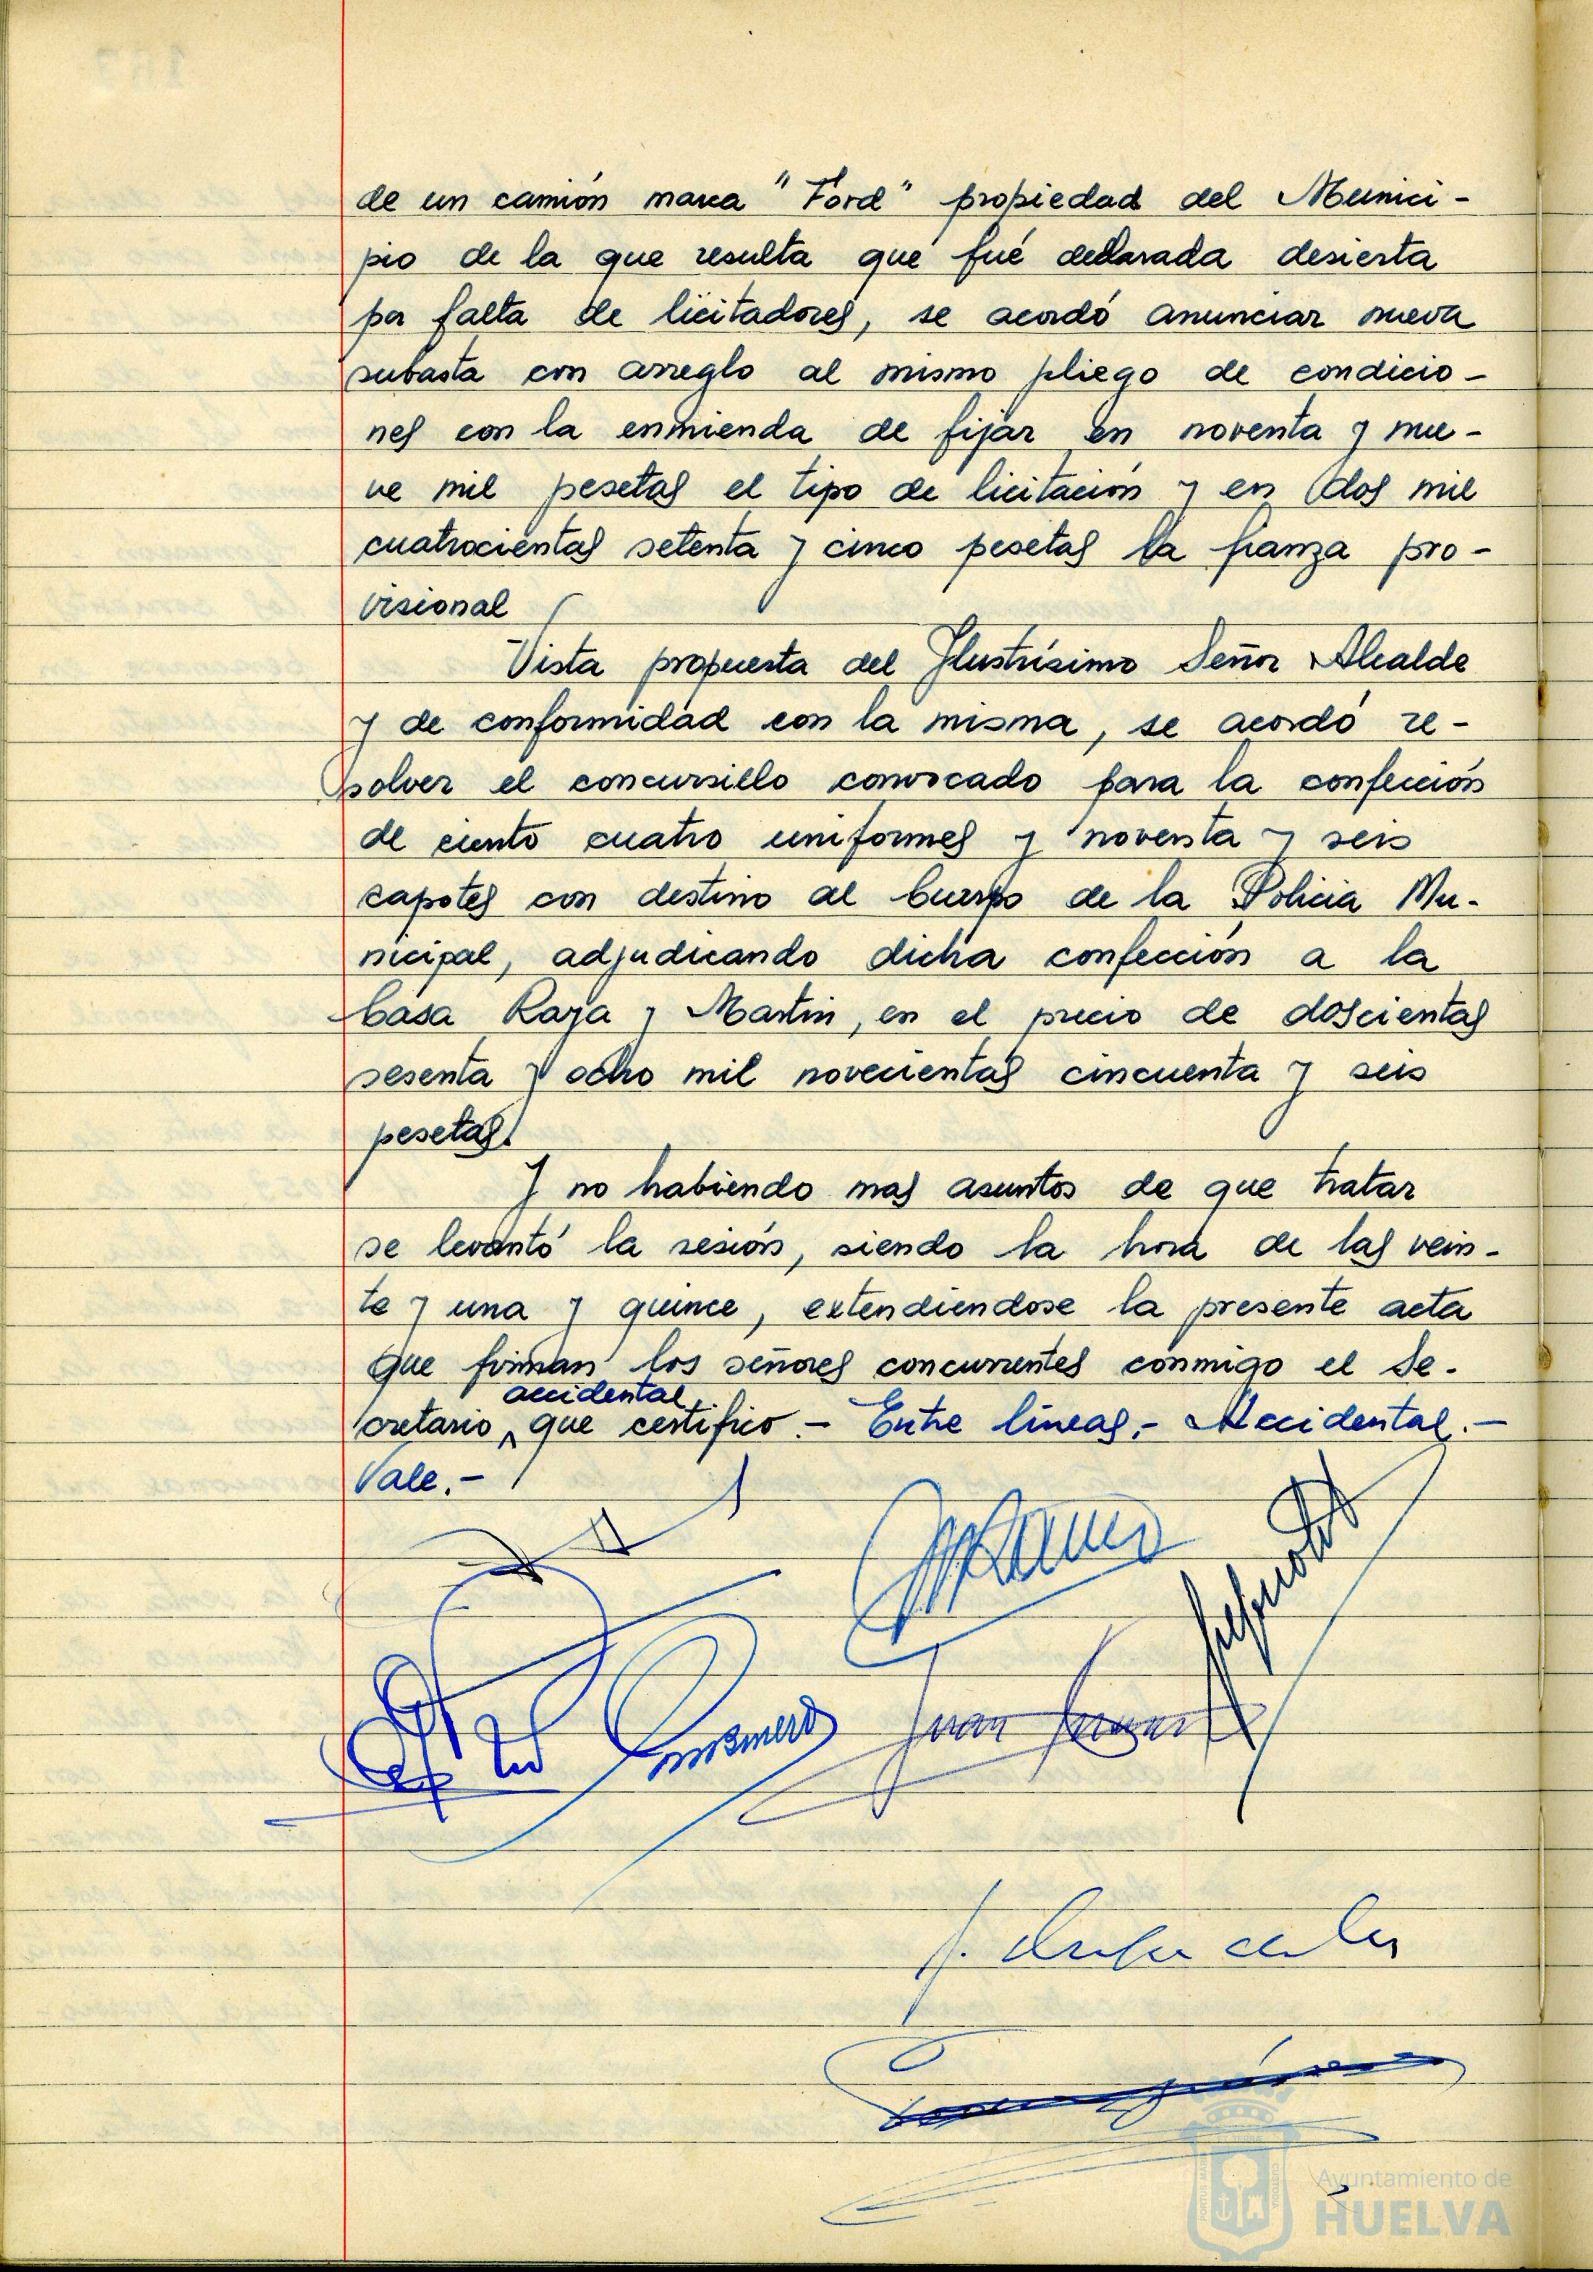 de un camión marca "Ford" propiedad del Munici-
pio de la que resulta que fué declarada desierta
por falta de licitadores, se acordó anunciar nueva
subasta con arreglo al mismo pliego de condicio-
nes con la enmienda de fijar en noventa y nue-
ve mil pesetas el tipo de licitación y en dos mil
cuatrocientas setenta y cinco pesetas la fianza pro-
visional
Vista propuesta del Ilustrísimo Señor Alcalde
y de conformidad con la misma, se acordó re-
solver el concursillo convocado para la confección
de ciento cuatro uniformes y noventa y seis
capotes con destino al Cuerpo de la Policia Mu-
nicipal, adjudicando dicha confección a la
Casa Raya y Martin, en el precio de doscientas
sesenta y ocho mil novecientas cincuenta y seis
pesetas.
Y no habiendo mas asuntos de que tratar
se levantó la sesión, siendo la hora de las vein-
te y una y quince, extendiendose la presente acta
que firman los señores concurrentes conmigo el Se-
accidental
cretario ^ que certifico.- Entre líneas.- Accidental.-
Vale.-
Juan
Ayuntamiento de
HUELVA